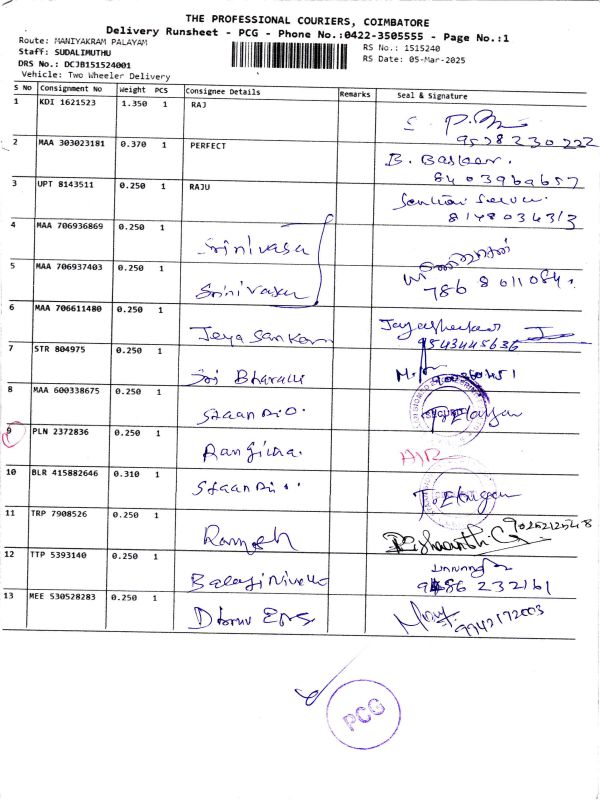 THE PROFESSIONAL COURIERS, COIMBATORE
Delivery Runsheet - PCG - Phone No.:0422-3505555 - Page No.:1
Route: MANIYAKRAM PALAYAM
Staff: SUDALIMUTHU
RS No.: 1515240
DRS No.: DCJB151524001
RS Date: 05-Mar-2025
Vehicle: Two Wheeler Delivery
S No Consignment No Weight PCS Consignee Details Remarks Seal & Signature
1 KDI 1621523 1.350 1 RAJ
9578230222
2 MAA 303023181 0.370 1 PERFECT B. Baskaar.
8403969657
3 UPT 8143511 0.250 1 RAJU
8148034313
4 MAA 706936869 0.250 1 Srinivasa
5 MAA 706937403 0.250 1 Srinivasan
786 8011084.
6 MAA 706611480 0.250 1 Jeya Sankar Jayashankar
9543445636
7 STR 804975 0.250 1 Sri Bharathi
8 MAA 600338675 0.250 1 Staan Bio. T. Elayan
9 PLN 2372836 0.250 1 A/R
10 BLR 415882646 0.310 1 Staan Bio.
11 TRP 7908526 0.250 1 Ramesh
12 TTP 5393140 0.250 1 Balaji
9486 232161
13 MEE 530528283 0.250 1
9942172003
PCG